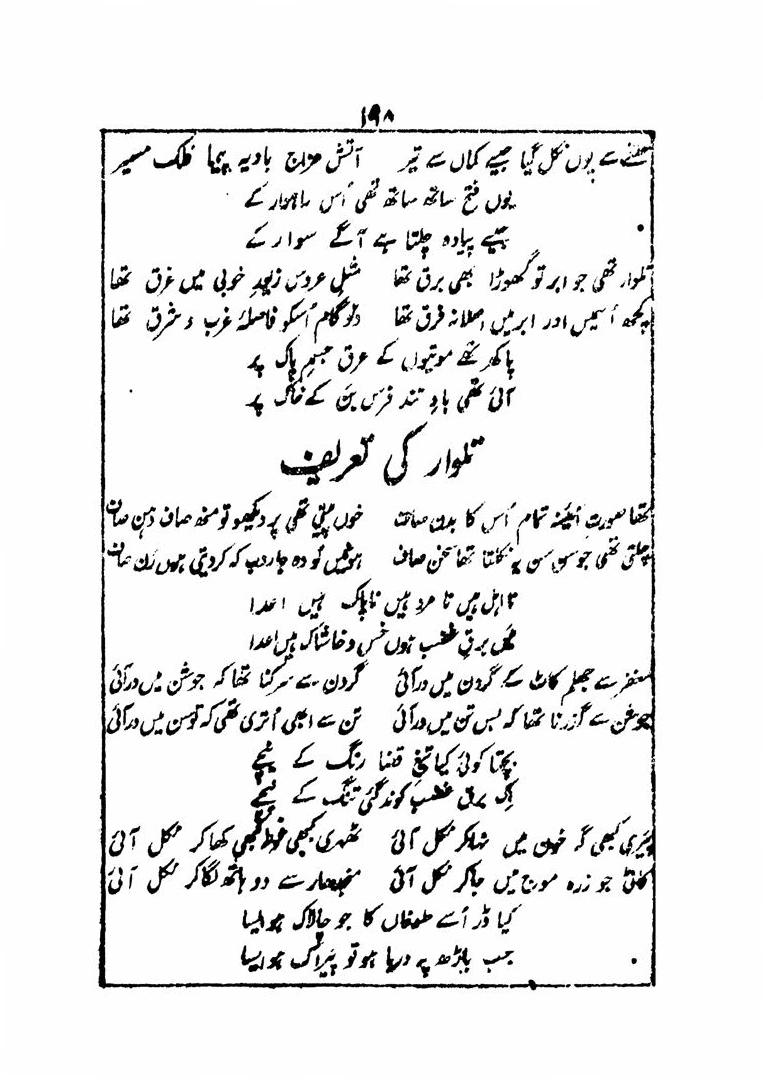 ۱۹۸
سے یوں نکل گیا جیسے کماں سے تیر آتش مزاج بادیہ پیما فلک مسیر
یوں فتح ساتھ ساتھ تھی اُس راہوار کے
جیسے پیادہ چلتا ہے آگے سوار کے
تلوار تھی جو ابر تو گھوڑا بھی برق تھا مثلِ عروس زیورِ خوبی میں غرق تھا
کچھ اُسمیں اور ابر میں اصلا نہ فرق تھا دو گام اُسکو فاصلۂ غرب و شرق تھا
پاکھر تھے موتیوں کے عرق جسمِ پاک پر
آئی تھی بادِ تند فرس بن کے خاک پر
تلوار کی تعریف
تھا صورتِ آئینہ تمام اُس کا بدن صاف خوں پیتی تھی پر دیکھو تو منھ صاف دہن صاف
چلتی تھی جو سن سن یہ نکلتا تھا سخن صاف ہوں میں تو وہ جاروب کہ کر دیتی ہوں رن صاف
نا اہل ہیں نا مرد ہیں ناپاک ہیں اعدا
میں برقِ غضب ہوں خس و خاشاک ہیں اعدا
مغفر سے جھلم کاٹ کے گردن میں در آئی گردن سے سرکنا تھا کہ جوشن میں در آئی
جوشن سے گزرنا تھا کہ بس تن میں در آئی تن سے ابھی اُتری تھی کہ توسن میں در آئی
بچتا کوئی کیا تیغِ قضا رنگ کے نیچے
اِک برق غضب کوند گئی تنگ کے نیچے
پَیری کبھی گہ خون میں نہا کر نکل آئی ٹھہری کبھی غوطہ کبھی کھا کر نکل آئی
کاٹی جو زرہ موج میں جا کر نکل آئی منجدھار سے دو ہاتھ لگا کر نکل آئی
کیا ڈر اُسے طوفاں کا جو چالاک ہو ایسا
جب باڑھ پہ دریا ہو تو پَیراک ہو ایسا